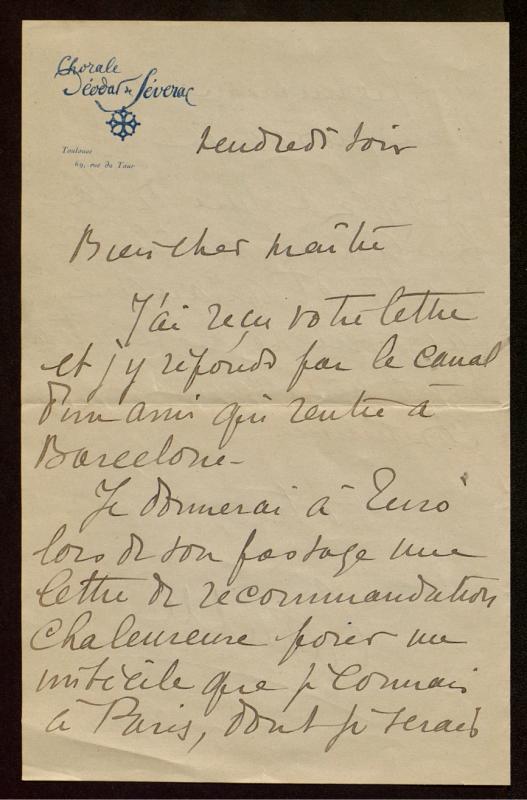 Chorale
Déodat de Séverac
Toulouse
69, rue du Taur
vendredi soir
Bien cher maître
J'ai reçu votre lettre
et j'y réponds par le canal
d'un ami qui rentre à
Barcelone -
Je donnerai à
lors de son passage une
lettre de recommandation
chaleureuse pour un
que je connais
à Paris, dont je serais